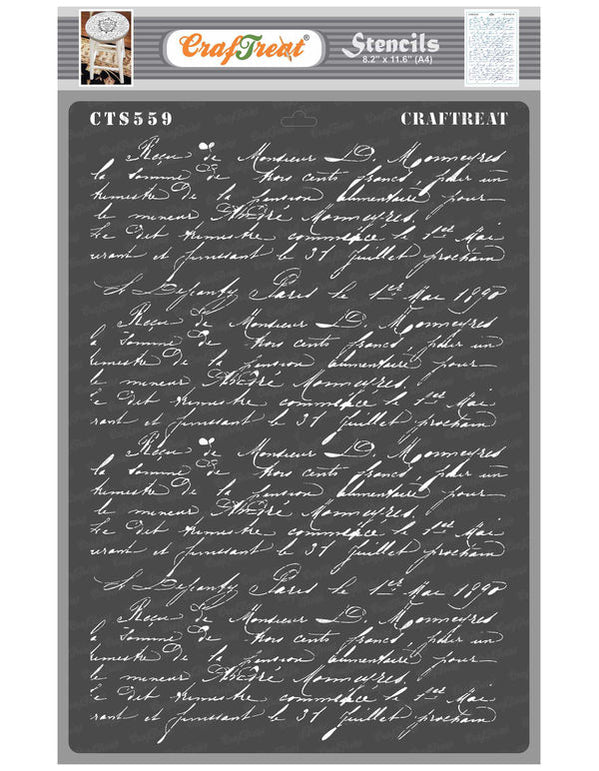 CrafTreat®
Stencils
8.2" x 11.6" (A4)
CTS559 CRAFTREAT
Reçu de Monsieur D. Monmeyres
la somme de trois cents francs, pour un
trimestre de la pension alimentaire pour
le mineur André Monmeyres.
Le dit trimestre commence le 1er Mai
urant et finissant le 31 juillet prochain
Paris le 1er Mai 1890
Reçu de Monsieur D. Monmeyres
a somme de trois cents francs, pour un
rimestre de la pension alimentaire pour
le mineur André Monmeyres.
Le dit trimestre commence le 1er Mai
rant et finissant le 31 juillet prochain
Reçu de Monsieur D. Monmeyres
la somme de trois cents francs, pour un
trimestre de la pension alimentaire pour
le mineur André Monmeyres.
Le dit trimestre commence le 1er Mai
urant et finissant le 31 juillet prochain
Paris le 1er Mai 1890
Reçu de Monsieur D. Monmeyres
a somme de trois cents francs, pour un
rimestre de la pension alimentaire pour
le mineur André Monmeyres.
Le dit trimestre commence le 1er Mai
rant et finissant le 31 juillet prochain